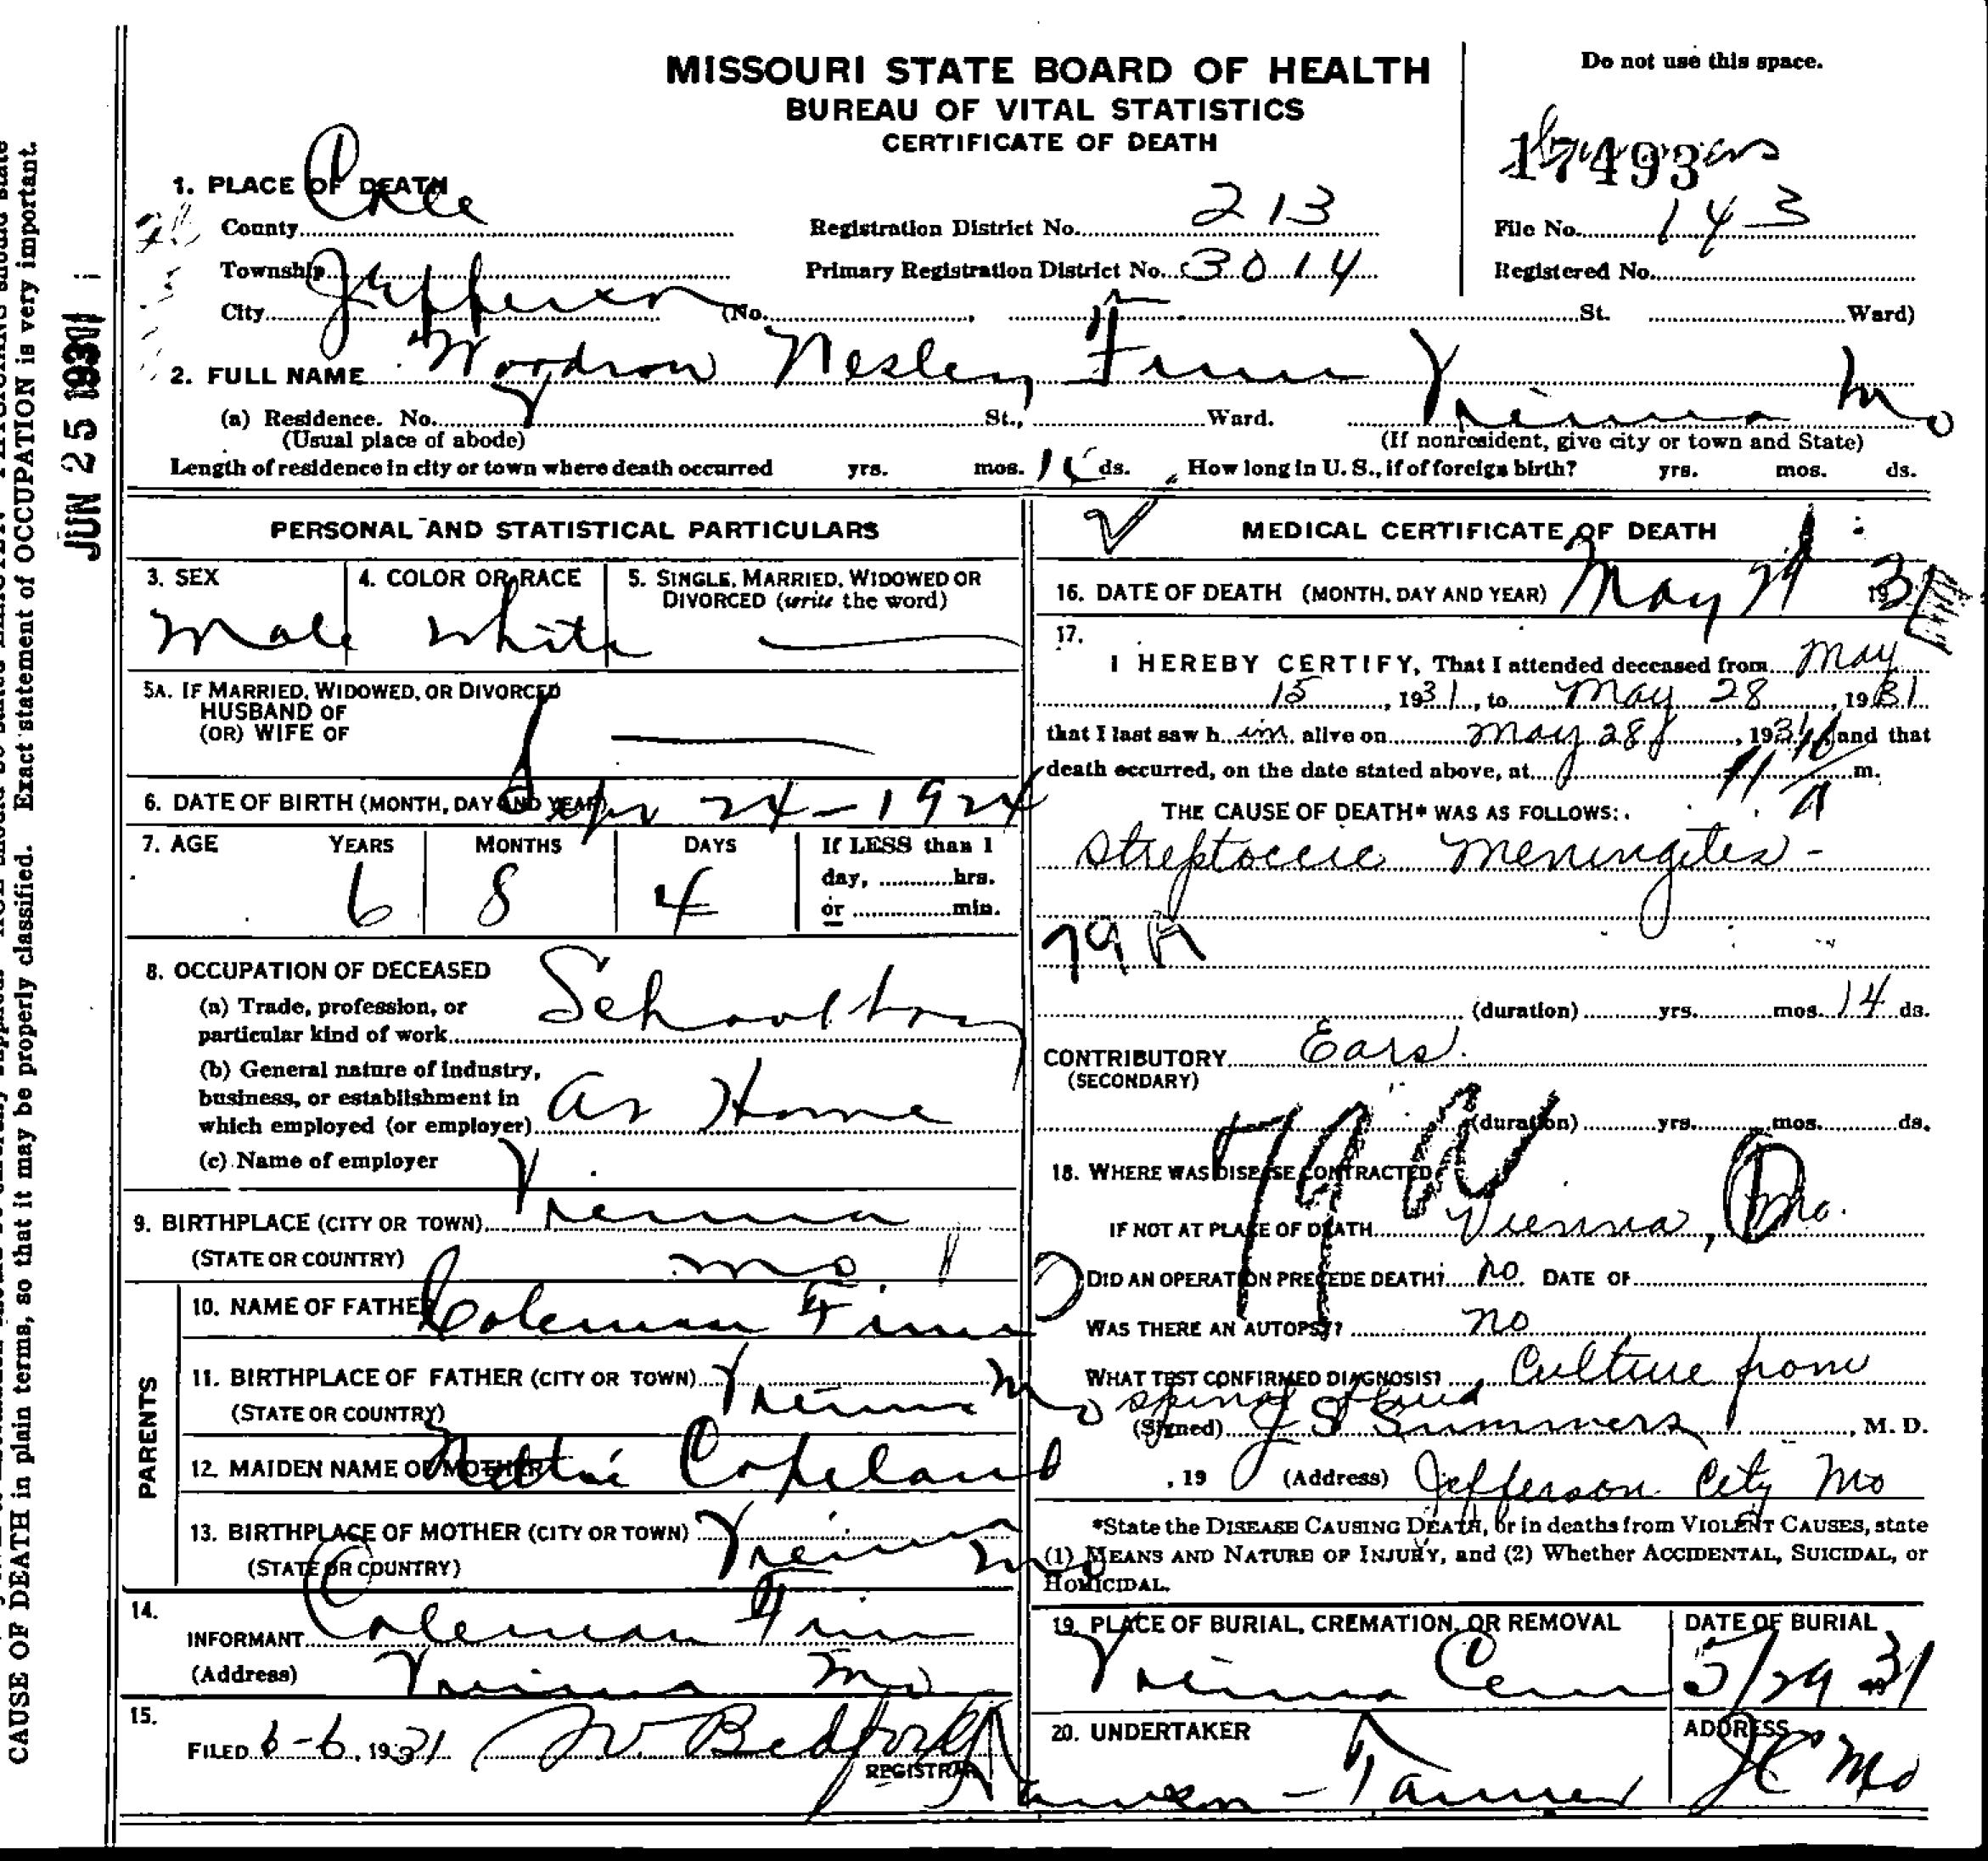 MISSOURI STATE BOARD OF HEALTH
BUREAU OF VITAL STATISTICS
CERTIFICATE OF DEATH
Do not use this space.
17493
1. PLACE OF DEATH
County Cole
Registration District No. 213
File No. 143
Township
Primary Registration District No. 3014
Registered No.
City Jefferson (No. , St. Ward)
2. FULL NAME Woodrow Wesley
(a) Residence. No. St., Ward. Vienna Mo
(Usual place of abode) (If nonresident, give city or town and State)
Length of residence in city or town where death occurred yrs. mos. ds. How long in U. S., if of foreign birth? yrs. mos. ds.
JUN 25 1931
CAUSE OF DEATH in plain terms, so that it may be properly classified. Exact statement of OCCUPATION is very important.
PERSONAL AND STATISTICAL PARTICULARS
3. SEX
Male
4. COLOR OR RACE
White
5. SINGLE, MARRIED, WIDOWED OR
DIVORCED (write the word)
5A. IF MARRIED, WIDOWED, OR DIVORCED
HUSBAND OF
(OR) WIFE OF
6. DATE OF BIRTH (MONTH, DAY AND YEAR) 24-1924
7. AGE YEARS MONTHS DAYS If LESS than 1
day, hrs.
or min.
6 8 4
8. OCCUPATION OF DECEASED
(a) Trade, profession, or
particular kind of work School boy
(b) General nature of industry,
business, or establishment in
which employed (or employer) At Home
(c) Name of employer
9. BIRTHPLACE (CITY OR TOWN) Vienna
(STATE OR COUNTRY) Mo
PARENTS
10. NAME OF FATHER Coleman
11. BIRTHPLACE OF FATHER (CITY OR TOWN) Vienna Mo
(STATE OR COUNTRY)
12. MAIDEN NAME OF MOTHER Copeland
13. BIRTHPLACE OF MOTHER (CITY OR TOWN) Vienna Mo
(STATE OR COUNTRY)
14.
INFORMANT Coleman
(Address) Vienna Mo
15.
FILED 6-6, 1931 W. Bedford
REGISTRAR
MEDICAL CERTIFICATE OF DEATH
16. DATE OF DEATH (MONTH, DAY AND YEAR) May 1931
17.
I HEREBY CERTIFY, That I attended deceased from May
15, 1931, to May 28, 1931
that I last saw him alive on May 28, 1931, and that
death occurred, on the date stated above, at m.
THE CAUSE OF DEATH* WAS AS FOLLOWS:
Streptoccic Meningitis -
79A
(duration) yrs. mos. 14 ds.
CONTRIBUTORY Ears.
(SECONDARY)
(duration) yrs. mos. ds.
79A
18. WHERE WAS DISEASE CONTRACTED
IF NOT AT PLACE OF DEATH Vienna, Mo.
DID AN OPERATION PRECEDE DEATH? no. DATE OF
WAS THERE AN AUTOPSY? no
WHAT TEST CONFIRMED DIAGNOSIS? Culture from
spinal fluid
(Signed) J S Summers, M. D.
, 19 (Address) Jefferson City Mo
*State the DISEASE CAUSING DEATH, or in deaths from VIOLENT CAUSES, state
(1) MEANS AND NATURE OF INJURY, and (2) Whether ACCIDENTAL, SUICIDAL, or
HOMICIDAL.
19. PLACE OF BURIAL, CREMATION, OR REMOVAL
Vienna Cem
DATE OF BURIAL
5/29 1931
20. UNDERTAKER
Tanner
ADDRESS
JC Mo